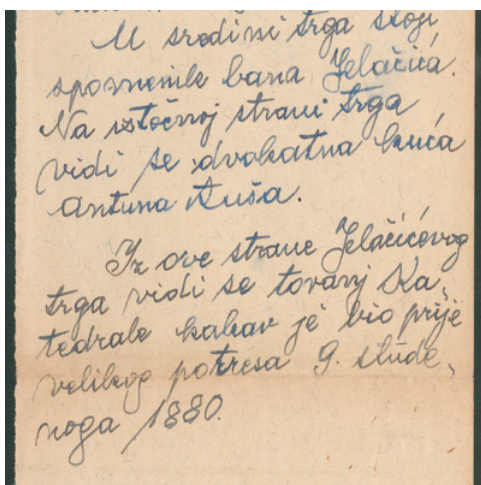 U sredini trga stoji
spomenik bana Jelačića.
Na istočnoj strani trga
vidi se dvokatna kuća
Antuna Auša.
Iz ove strane Jelačićevog
trga vidi se toranj Ka„
tedrale kakav je bio prije
velikog potresa 9. stude„
noga 1880.